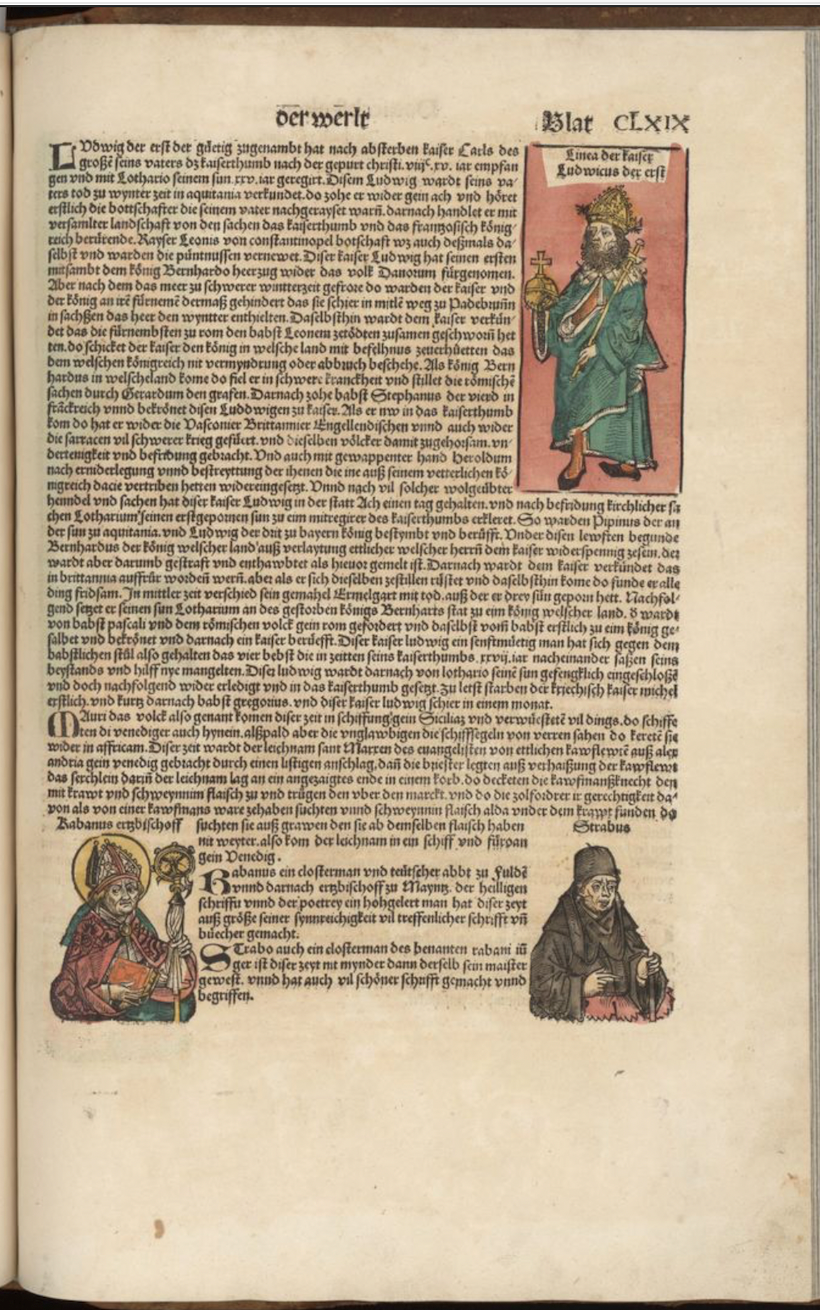 der werlt
Blat CLXIX
LVdwig der erst der güetig zugenambt hat nach absterben kaiser Carls des
großẽ seins vaters dz kaiserthumb nach der gepurt christi.viijᶜ.xv. iar empfan
gen vnd mit Lothario seinem sun.xxv.iar geregirt.Disem Ludwig wardt seins va-
ters tod zu wynter zeit in aquitania verkundet.do zohe er wider gein ach vnd höret
erstlich die bottschafter die seinem vater nachgerayset warñ.darnach handlet er mit
versamlter landschaft von den sachen das kaiserthumb vnd das frantzosisch könig-
reich berürende.Kayser Leonis von constantinopel botschaft wz auch deßmals da-
selbst vnd warden die püntnussen vernewet.Diser kaiser Ludwig hat seinen ersten
mitsambt dem könig Bernhardo heerzug wider das volk Danorum fürgenomen.
Aber nach dem das meer zu schwerer wintterzeit gefrore do warden der kaiser vnd
der könig an irẽ fürnemẽ dermaß gehindert das sie schier in mitlẽ weg zu Padebrunn
in sachßen das heer den wynter enthielten.Daselbsthin wardt dem kaiser verkün-
det das die fürnembsten zu rom den babst Leonem zetödten zusamen geschworñ het
ten.do schicket der kaiser den könig in welsche land mit befelhnus zeuerhüetten das
dem welschen königreich nit vermyndrung oder abbruch beschehe.Als könig Bern
hardus in welscheland kome do fiel er in schwere kranckheit vnd stillet die römischẽ
sachen durch Gerardum den grafen.Darnach zohe babst Stephanus der vierd in
frãckreich vnnd bekrönet disen Luddwigen zu kaiser.Als er nw in das kaiserthumb
kom do hat er wider die Vasconier Brittannier Engellendischen vnnd auch wider
die sarracen vil schwerer krieg gefürt.vnd dieselben völcker damit zugehorsam.vn-
dertenigkeit vnd befridung gebracht.Vnd auch mit gewappenter hand Heroldum
nach erniderlegung vnnd bestreyttung der ihenen die ine auß seinem vetterlichen kö-
nigreich dacie vertriben hetten widereingesetzt.Vnnd nach vil solcher wolgeübter
henndel vnd sachen hat diser kaiser Ludwig in der statt Ach einen tag gehalten.vnd nach befridung kirchlicher sa
chen Lotharium seinen erstgepornen sun zu eim mitregirer des kaiserthumbs erkleret. So warden Pipinus der an
der sun zu aquitania.vnd Ludwig der drit zu bayern könig bestymbt vnd berüfft.Vnder disen lewften begunde
Bernhardus der könig welscher land auß verlaytung ettlicher welscher herrñ dem kaiser widerspennig zesein.der
wardt aber darumb gestraft vnd enthawbtet als hieuor gemelt ist.Darnach wardt dem kaiser verkündet das
in brittannia auffrür wordeñ werñ.aber als er sich dieselben zestillen rüstet vnd daselbsthin kome do funde er alle
ding fridsam.In mittler zeit verschied sein gemahel Ermelgart mit tod.auß der er drey sün geporn hett. Nachfol-
gend setzet er seinen sun Lotharium an des gestorben königs Bernharts stat zu eim könig welscher land. d̕ wardt
von babst pascali vnd dem römischen volck gein rom gefordert vnd daselbst vom babst erstlich zu eim könig ge-
salbet vnd bekrönet vnd darnach ein kaiser berüefft.Diser kaiser ludwig ein senftmüetig man hat sich gegen dem
babstlichen stül also gehalten das vier bebst die in zeitten seins kaiserthumbs.xxvij.iar nacheinander saßen seins
beystands vnd hilff nye mangelten.Diser ludwig wardt darnach von lothario seinẽ sun gefengklich eingeschloßẽ
vnd doch nachfolgend wider erledigt vnd in das kaiserthumb gesetzt.Zu letst starben der kriechisch kaiser michel
erstlich.vnd kurtz darnach babst gregorius.vnd diser kaiser ludwig schier in einem monat.
MAuri das volck also genant komen diser zeit in schiffung gein Siciliaz vnd verwüestetẽ vil dings.do schiffe
ten di venediger auch hynein.alßpald aber die vnglawbigen die schiffsegeln von verren sahen do keretẽ sie
wider in affricam.Diser zeit wardt der leichnam sant Marxen des euangelisten von ettlichen kawflewtẽ auß alex
andria gein venedig gebracht durch einen listigen anschlag.dañ die briester legten auß verhaißung der kawflewt
das serchlein dariñ der leichnam lag an ein angezaigtes ende in einem korb.do deckten die kawfmanßknecht den
mit krawt vnd schweynnim flaisch zu vnd trügen den vber den marckt.vnd do die zolfordrer ir gerechtigkeit da-
von als von einer kawfmans ware zehaben süchten vnnd schweynnin flaisch alda vnder dem krawt funden do
Rabanus ertzbischoff
süchten sie auß grawen den sie ab demselben flaisch haben
nit weyter.also kom der leichnam in ein schiff vnd fürpan
gein Venedig.
Rabanus ein closterman vnd teütscher abbt zu Fuldẽ
vnnd darnach ertzbischoff zu Mayntz. der heilligen
schrifft vnnd der poetrey ein hohgelert man hat diser zeyt
auß größe seiner synnreichigkeit vil treffenlicher schrifft vñ
büecher gemacht.
STrabo auch ein closterman des benanten rabani iũ
ger ist diser zeyt nit mynder dann derselb sein maister
gewest. vnnd hat auch vil schöner schrifft gemacht vnnd
begriffen.
Strabus
Linea der kaiser
Ludwicus der erst